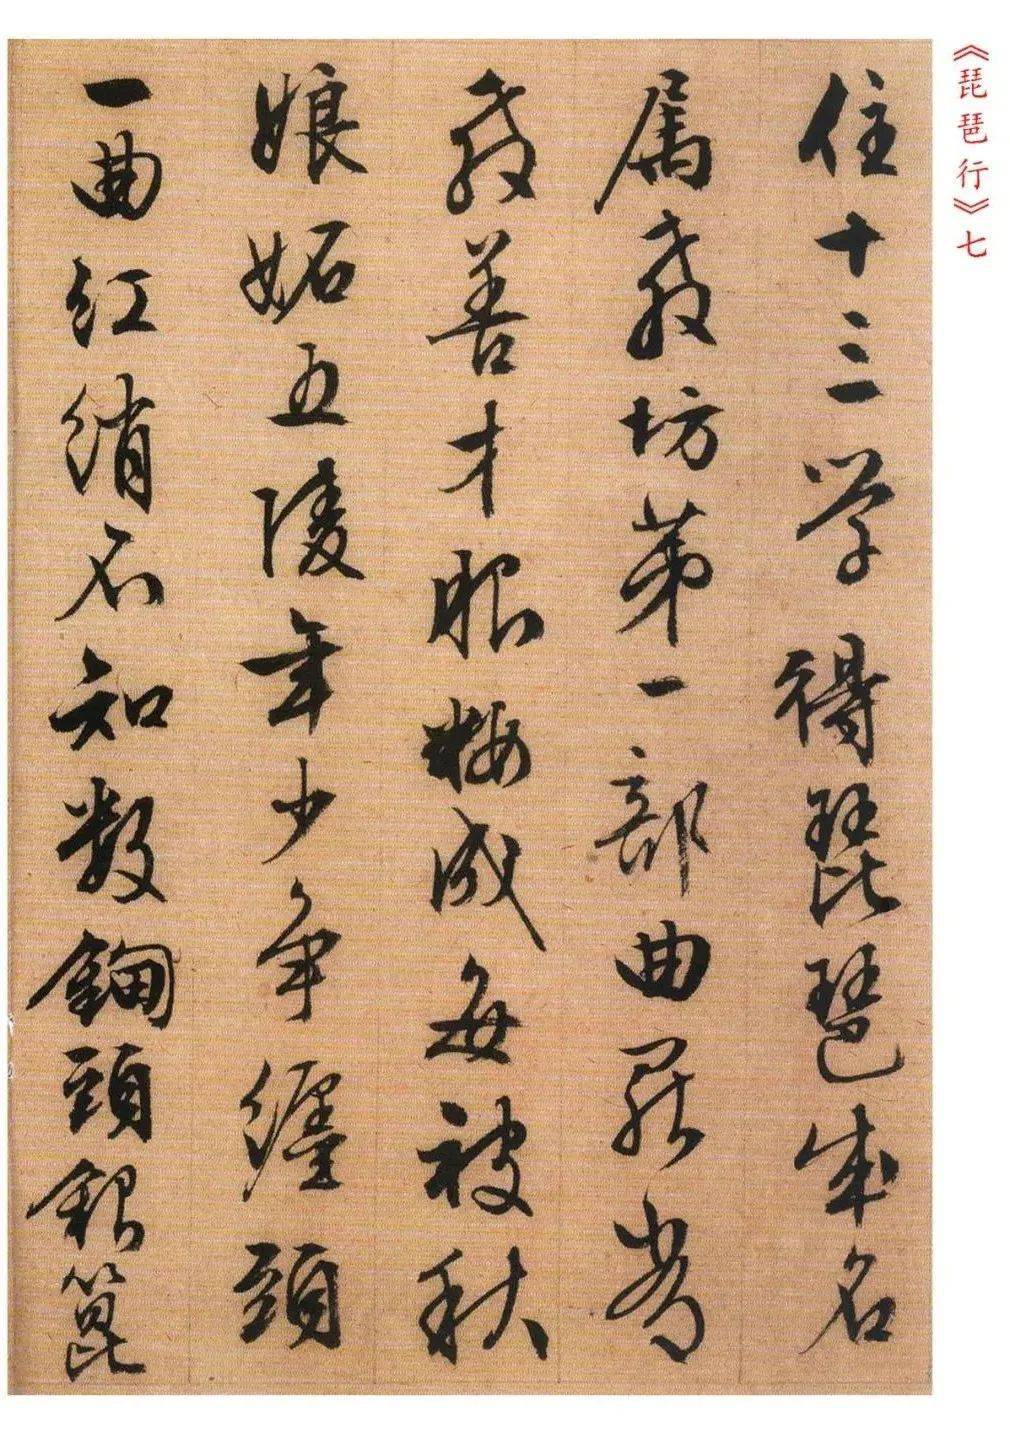 《琵琶行》七
住十三学得琵琶成名
属教坊第一部曲罷
教善才服粧成每被秋
娘妬五陵年少争纏頭
一曲红绡不知数鈿頭銀篦